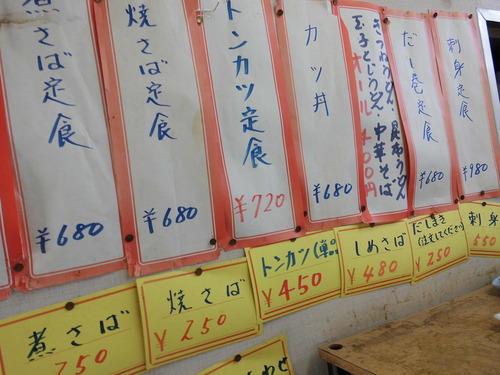 煮さば定食
¥680
焼さば定食
¥680
トンカツ定食
¥720
カツ丼
¥680
きつねうどん 昆布うどん
玉子とじうどん・中華そば
オール400円
だし巻定食
¥680
刺身定食
¥980
煮さば
250
焼さば
¥250
トンカツ(単品
¥450
しめさば
¥480
だしまき
(注文してください)
¥250
刺身
550
わせ